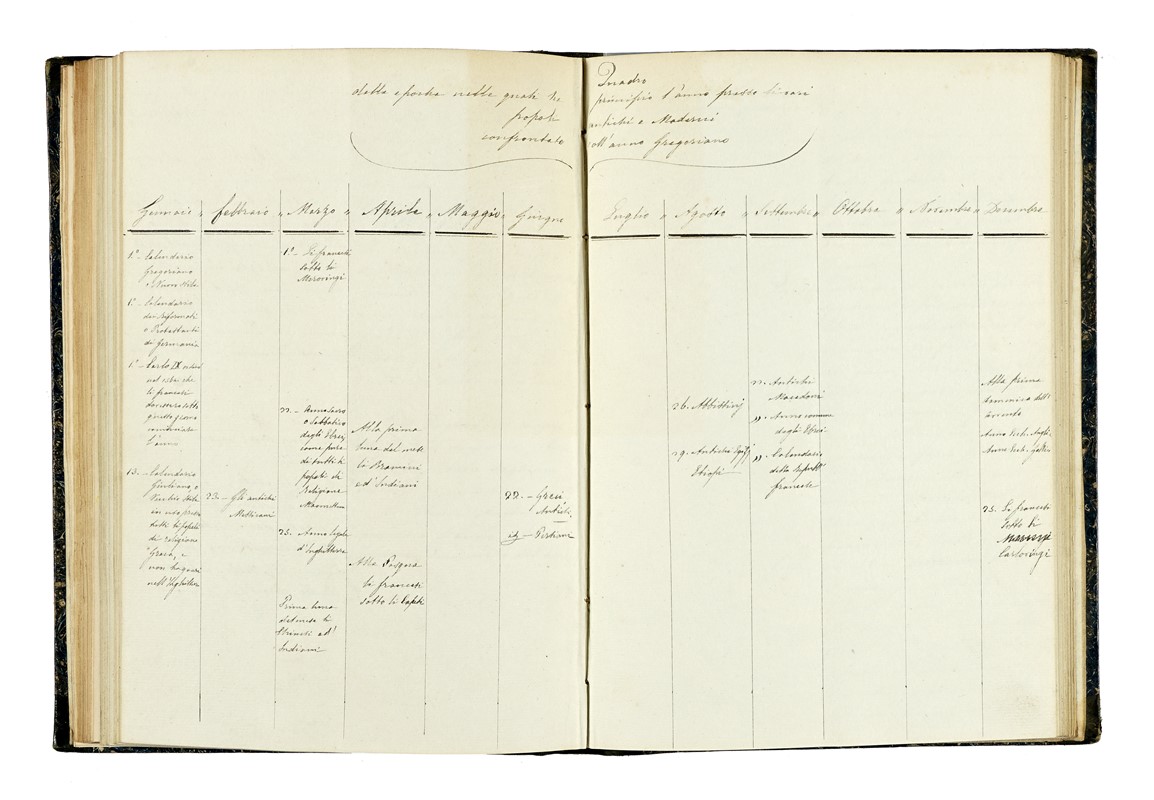 Quadro
della epoche nelle quale
principio l'anno presso
popoli
antichi e Moderni
confrontate
coll'anno Gregoriano
Gennaio " febbraio " Marzo " Aprile " Maggio " Giugno
Luglio " Agosto " Settembre " Ottobre " Novembre " Decembre
1° - Calendario
Gregoriano
o Nuovo stile
1° - Calendario
dei riformati
o Protestanti
di Germania
1° - Carlo IX
nel che
li francesi
sotto
questo giorno
cominciare
l'anno
13. - Calendario
Giuliano, o
Vecchio stile
in uso presso
tutti li popoli
di religione
Greca, e
non
nell'
23. - Gli antichi
Messicani
1° - Li francesi
sotto li
Merovingi
22. - Anno sacro
o Sabbatico
degli Ebrei,
come pure
di tutti li
popoli di
religione
25. - Anno legale
d'Inghilterra
Prima luna
del mese li
ed'
Indiani
Alla prima
luna del mese
li Bramini
ed' Indiani
Alla Pasqua
li francesi
sotto li Capeti
22. - Greci
Antichi
id - Persiani
26. Abbissinj
29. Antichi
Etiopi
22. - Antichi
Macedoni
" - Anno comune
degli Ebrei
" - Calendario
della
francese
Alla prima
domenica dell'
avvento
Anno Eccl.
Anno Eccl.
25. Li francesi
sotto li
Carlovingi